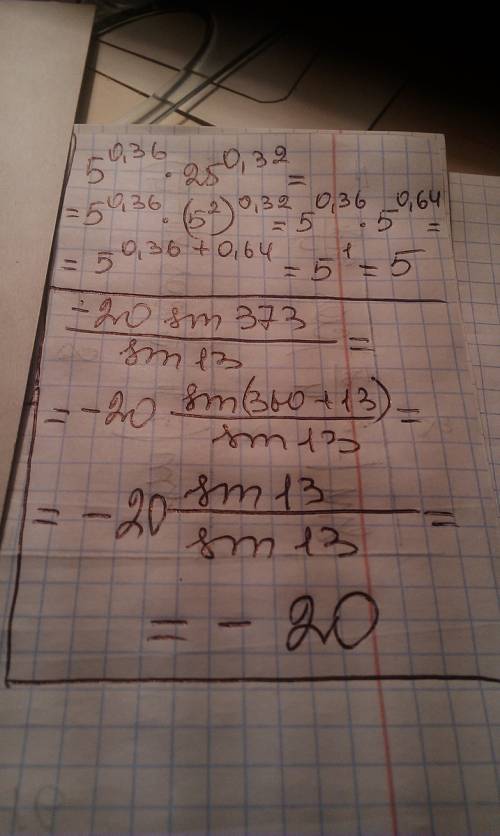 5^0,36 · 25^0,32 =
= 5^0,36 · (5^2)^0,32 = 5^0,36 · 5^0,64 =
= 5^0,36+0,64 = 5^1 = 5
-20 sin 373
sin 13 =
= -20 sin(360+13) / sin 13 =
= -20 sin 13 / sin 13 =
= - 20